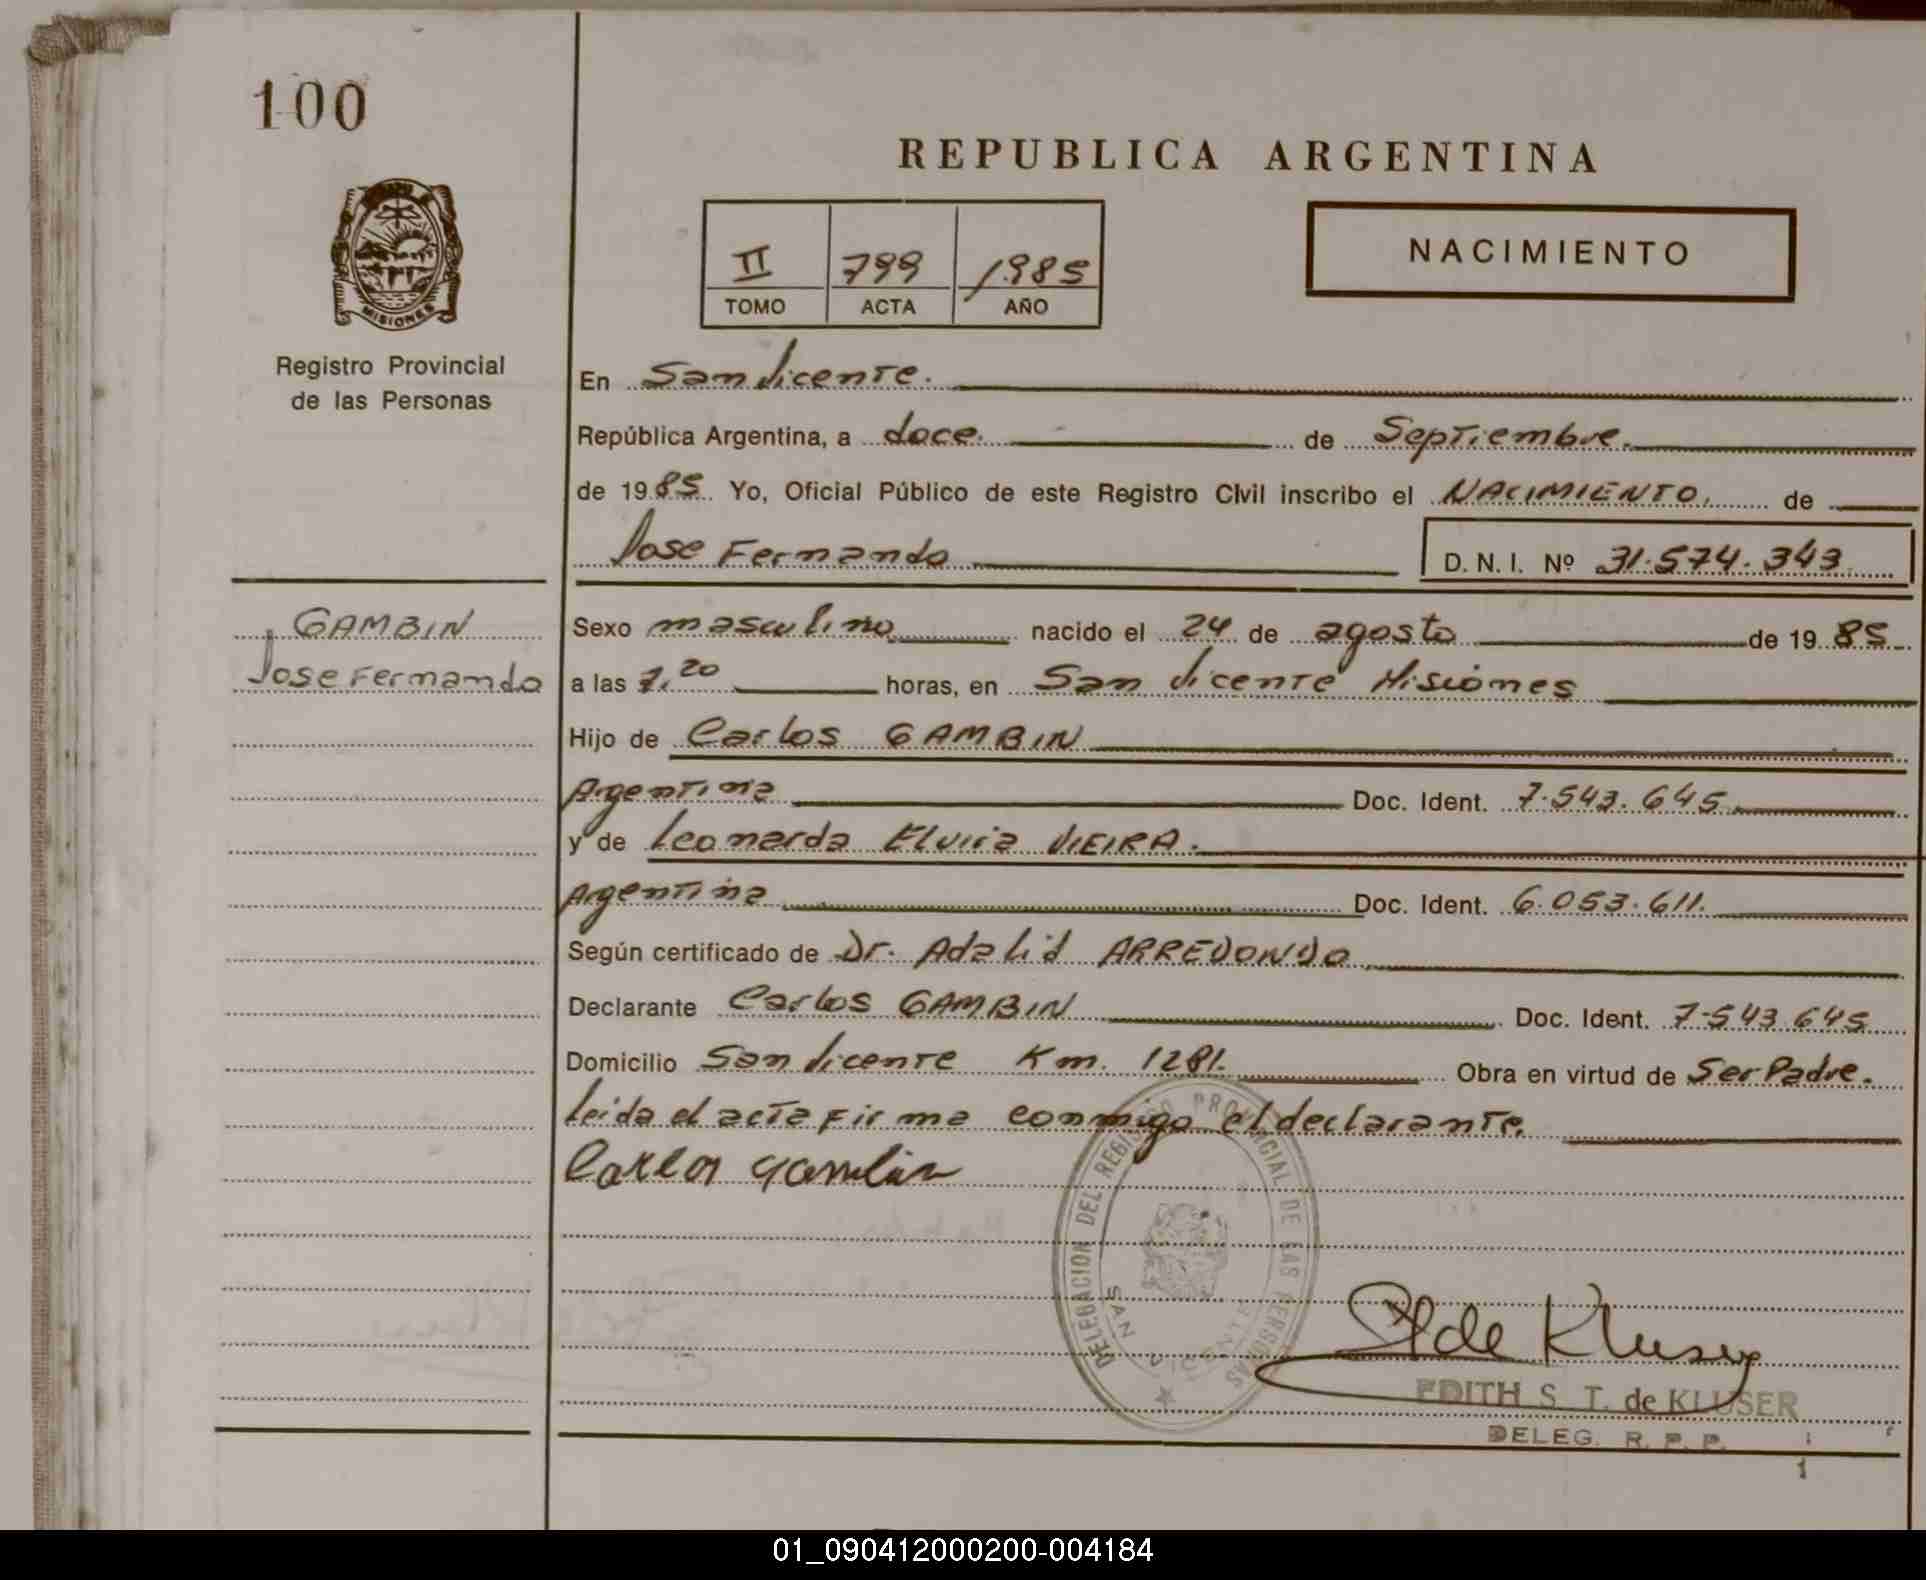 100
REPUBLICA ARGENTINA
II 799 1985
TOMO ACTA AÑO
NACIMIENTO
MISIONES
Registro Provincial
de las Personas
En San Vicente.
República Argentina, a doce. de Septiembre.
de 1985. Yo, Oficial Público de este Registro Civil inscribo el NACIMIENTO, de
Jose Fernando D. N. I. Nº 31.574.343
GAMBIN
Jose Fernando
Sexo masculino nacido el 24 de agosto de 1985
a las 7,20 horas, en San Vicente Misiones
Hijo de Carlos GAMBIN
Argentina Doc. Ident. 7.543.645.
y de Leonarda Elvira VIEIRA.
Argentina Doc. Ident. 6.053.611.
Según certificado de Dr. Adalid ARREDONDO
Declarante Carlos GAMBIN Doc. Ident. 7.543.645
Domicilio San Vicente Km. 1281. Obra en virtud de Ser Padre.
leida el acta firma conmigo el declarante.
Carlos Gambin
DELEGACION DEL REGISTRO PROVINCIAL DE LAS PERSONAS
SAN VICENTE
E de Kluser
EDITH S. T. de KLUSER
DELEG. R. P. P.
1
01_090412000200-004184